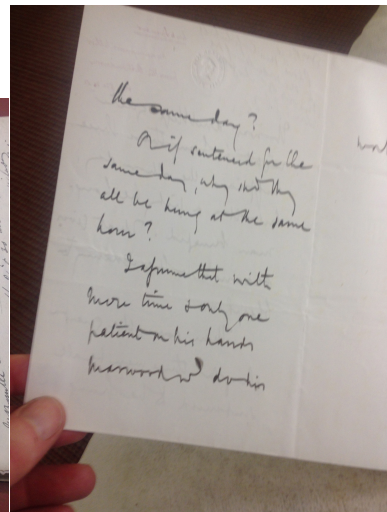 the same day?
Or if sentenced for the
same day, why shd they
all be hung at the same
hour?
I assume that with
more time & only one
patient on his hands
Marwood wd do his